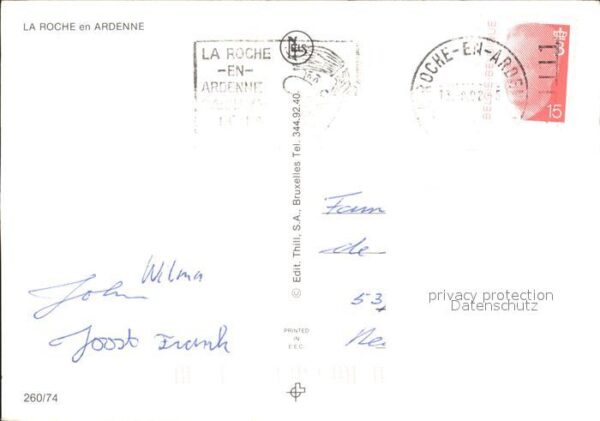 LA ROCHE en ARDENNE
LA ROCHE
-EN-
ARDENNE
ROCHE-EN-ARDE
BELGIE-BELGIQUE
15
© Edit. Thill, S.A., Bruxelles Tel. 344.92.40.
Fam
de
53
privacy protection
Datenschutz
Wilma
John
Joost Frank
PRINTED
IN
E.E.C.
260/74